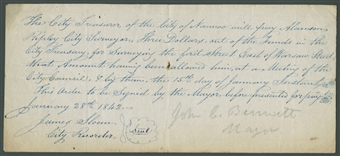 The City Treasurer of the City of Nauvoo will pay Alanson
Ripley City Surveyor, Three Dollars, out of the Funds in the
City Treasury, for Surveying the first Street East of Warsaw Street
that Amount having been allowed him, at a Meeting of the
City Council, by them, the 15th day of January
This Order to be Signed by the Mayor before presented for pay
January 28th 1842
James Sloan
City Recorder
Seal
John C. Bennett
Mayor